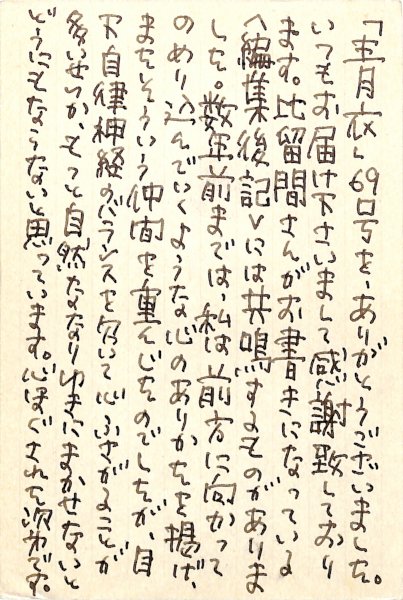 「青月衣」69号を、ありがとうございました。
いつもお届け下さいまして感謝致しており
ます。比留間さんがお書きになっている
〈編集後記〉には共鳴するものがありま
した。数年前までは、私は前方に向かって
のめり込んでいくような心のありかたを揚げ、
またそういう仲間を重んじたのでしたが、目
下自律神経のバランスを欠いて心ふさがることが
多いせいか、もっと自然ななりゆきにまかせないと
どうにもならないと思っています。心ほぐされた次第です。